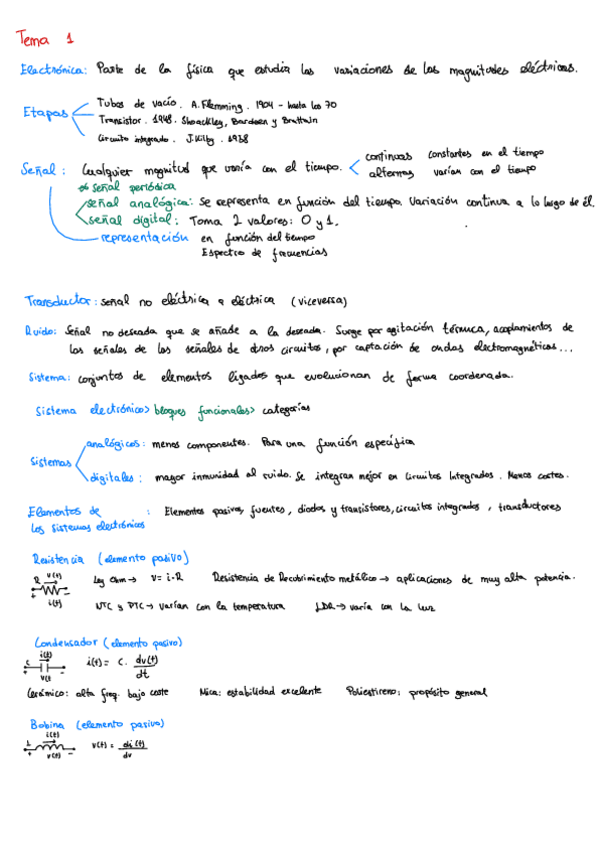 Tema 1
Electrónica: Parte de la física que estudia las variaciones de las magnitudes eléctricas.
Etapas
Tubos de vacío. A. Flemming. 1904 - hasta los 70
Transistor. 1948. Shoackley, Bardeen y Brattain
Circuito integrado. J. Kilby. 1938
Señal: Cualquier magnitud que varía con el tiempo.
continuas constantes en el tiempo
alternas varían con el tiempo
señal periódica
señal analógica: Se representa en función del tiempo. Variación continua a lo largo de él.
señal digital: Toma 2 valores: 0 y 1.
representación en función del tiempo
Espectro de frecuencias
Transductor: señal no eléctrica a eléctrica (viceversa)
Ruido: Señal no deseada que se añade a la deseada. Surge por agitación térmica, acoplamientos de
las señales de las señales de otros circuitos, por captación de ondas electromagnéticas...
Sistema: conjuntos de elementos ligados que evolucionan de forma coordenada.
Sistema electrónico> bloques funcionales> categorías
Sistemas
analógicos: menos componentes. Para una función específica
digitales: mayor inmunidad al ruido. Se integran mejor en Circuitos Integrados. Menos costes.
Elementos de : Elementos pasivos, fuentes, diodos y transistores, circuitos integrados, transductores
los sistemas electrónicos
Resistencia (elemento pasivo)
R v(t)
+ -
i(t)
Ley Ohm → V = i·R Resistencia de Recubrimiento metálico → aplicaciones de muy alta potencia.
NTC y PTC → varían con la temperatura LDR → varía con la luz
Condensador (elemento pasivo)
i(t)
C
+ v(t) -
i(t) = C. dv(t)
dt
Cerámico: alta freq. bajo coste Mica: estabilidad excelente Poliestireno: propósito general
Bobina (elemento pasivo)
i(t)
L
+ v(t) -
v(t) = di(t)
dv